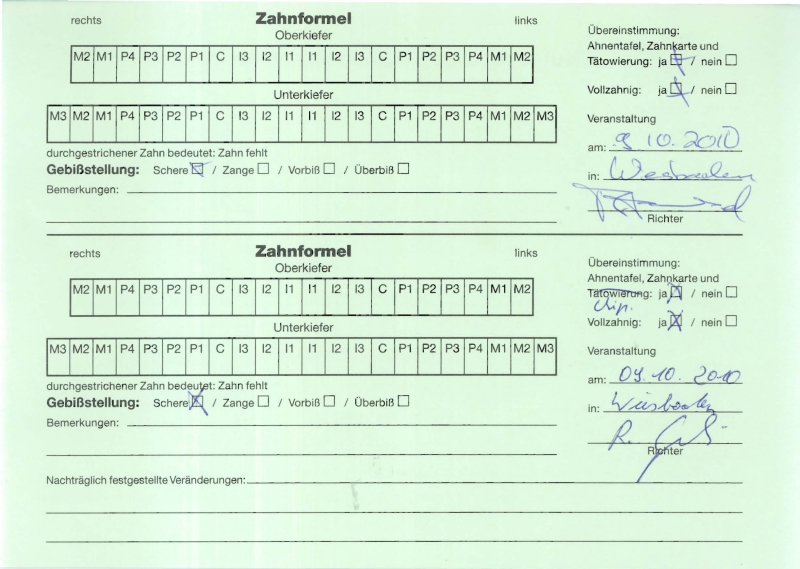 rechts Zahnformel links
Oberkiefer
M2 M1 P4 P3 P2 P1 C I3 I2 I1 I1 I2 I3 C P1 P2 P3 P4 M1 M2
Unterkiefer
M3 M2 M1 P4 P3 P2 P1 C I3 I2 I1 I1 I2 I3 C P1 P2 P3 P4 M1 M2 M3
durchgestrichener Zahn bedeutet: Zahn fehlt
Gebißstellung: Schere / Zange / Vorbiß / Überbiß
Bemerkungen:
Übereinstimmung:
Ahnentafel, Zahnkarte und
Tätowierung: ja / nein
Vollzahnig: ja / nein
Veranstaltung
am: 9 10. 2010
in: Wiesbaden
Richter
rechts Zahnformel links
Oberkiefer
M2 M1 P4 P3 P2 P1 C I3 I2 I1 I1 I2 I3 C P1 P2 P3 P4 M1 M2
Unterkiefer
M3 M2 M1 P4 P3 P2 P1 C I3 I2 I1 I1 I2 I3 C P1 P2 P3 P4 M1 M2 M3
durchgestrichener Zahn bedeutet: Zahn fehlt
Gebißstellung: Schere / Zange / Vorbiß / Überbiß
Bemerkungen:
Übereinstimmung:
Ahnentafel, Zahnkarte und
Tätowierung: ja / nein
Chip.
Vollzahnig: ja / nein
Veranstaltung
am: 09. 10. 2010
in: Wiesbaden
R.
Richter
Nachträglich festgestellte Veränderungen: